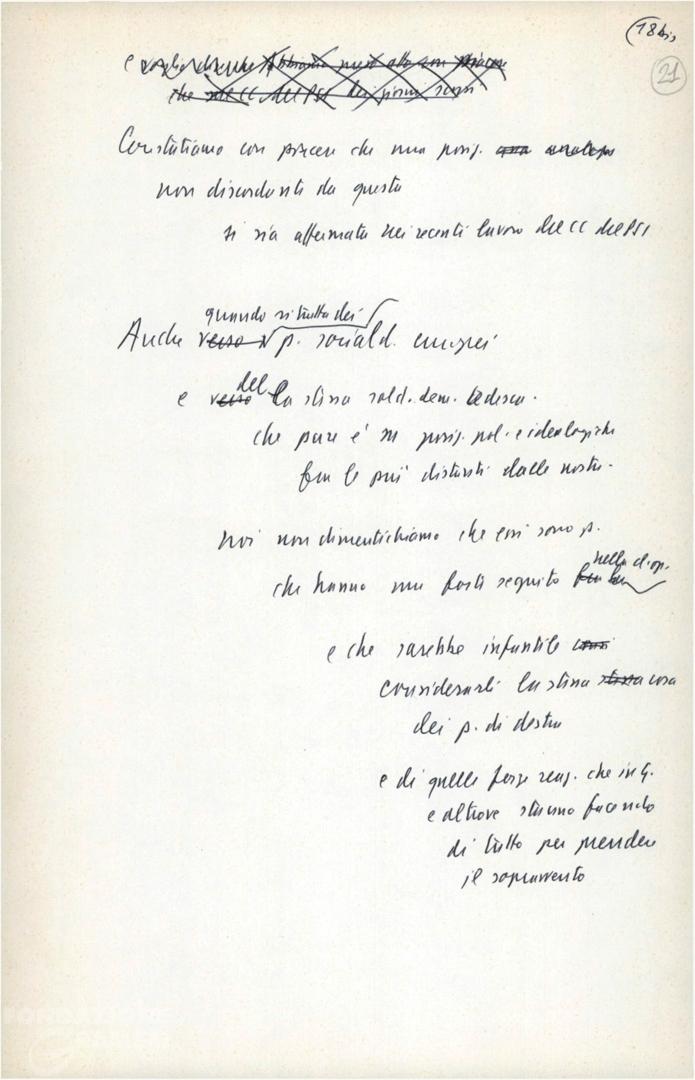 (18 bis
21
e
che nel CC del PSI dei giorni scorsi
Constatiamo con piacere che una posiz. una analoga
non discordante da questa
si sia affermata nei recenti lavori del CC del PSI
quando si tratta dei
Anche verso p. sociald. europei
del
e verso la stessa sociald. dem. tedesca.
che pure è su posiz. pol. e ideologiche
fra le più distanti dalle nostre.
noi non dimentichiamo che essi sono p.
nella cl. op.
che hanno un forte seguito fra la
e che sarebbe infantile
considerarli la stessa stessa cosa
dei p. di destra
e di quelle forze reaz. che in G.
e altrove stanno facendo
di tutto per prendere
il sopravvento